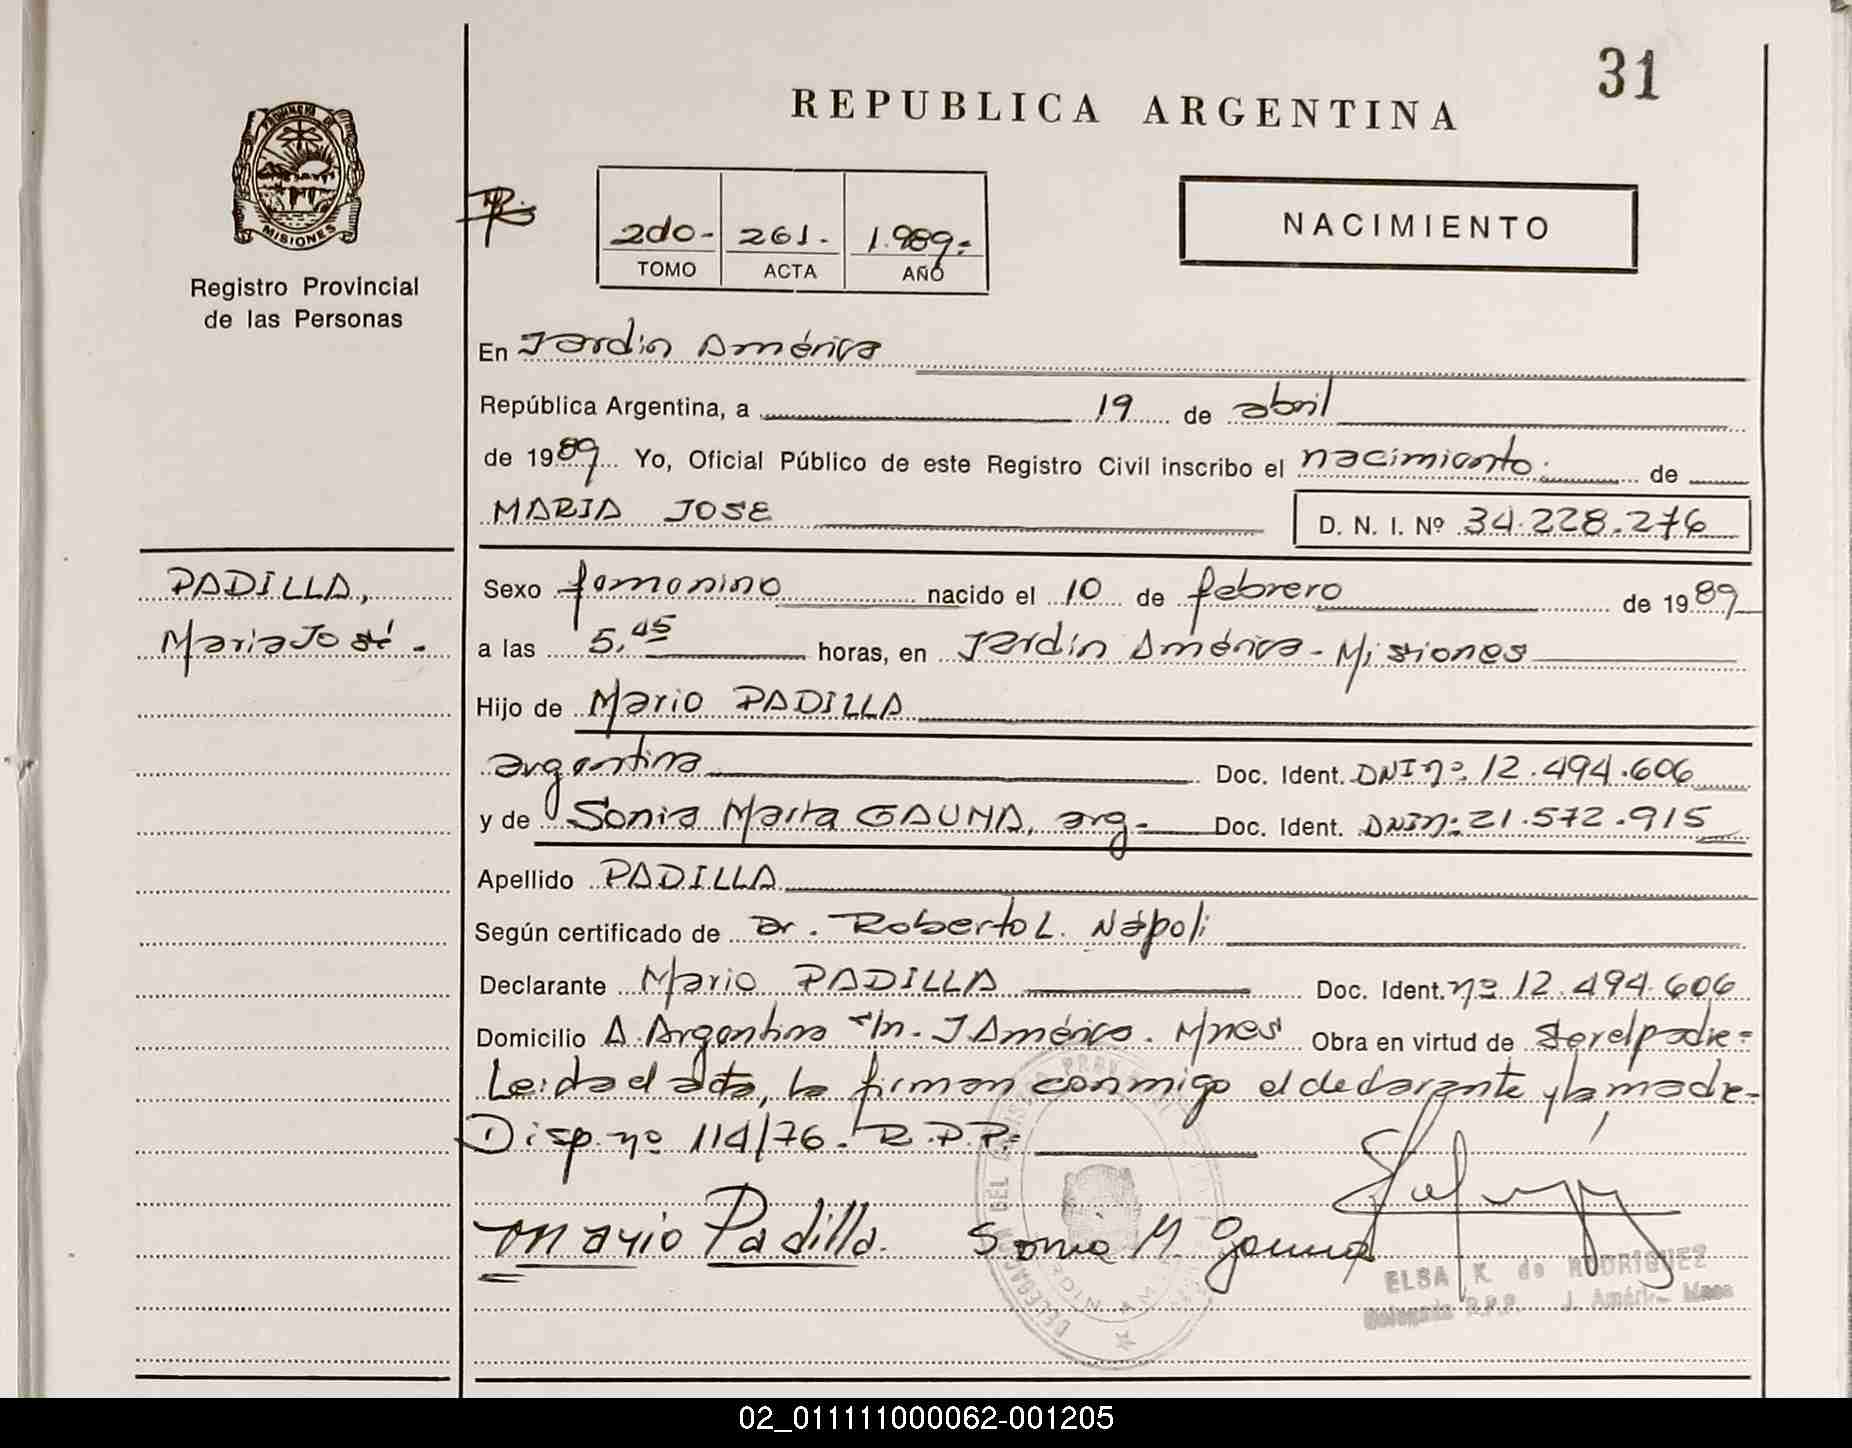 31
REPUBLICA ARGENTINA
PROVINCIA DE
MISIONES
Registro Provincial
de las Personas
2do- 261- 1.989.-
TOMO ACTA AÑO
NACIMIENTO
En Jardín América
República Argentina, a 19 de abril
de 1989 Yo, Oficial Público de este Registro Civil inscribo el nacimiento. de
MARIA JOSE D. N. I. Nº 34.228.276
PADILLA,
María José.-
Sexo femenino nacido el 10 de febrero de 1989
a las 5,45 horas, en Jardín América - Misiones
Hijo de Mario PADILLA
argentina Doc. Ident. DNI nº: 12.494.606
y de Sonia Marta GAUNA, arg.- Doc. Ident. DNI nº: 21.572.915
Apellido PADILLA
Según certificado de Dr. Roberto L. Nápoli
Declarante Mario PADILLA Doc. Ident. nº 12.494.606
Domicilio A. Argentina s/n. J. América. Mnes Obra en virtud de ser el padre=
Leída el acta, la firman conmigo el declarante y la madre-
Disp. nº 114/76. R.P.P.=
Mario Padilla. Sonia M. Gauna
ELSA K. de RODRIGUEZ
Delegada R.P.P. J. Amér. Mnes
02_011111000062-001205